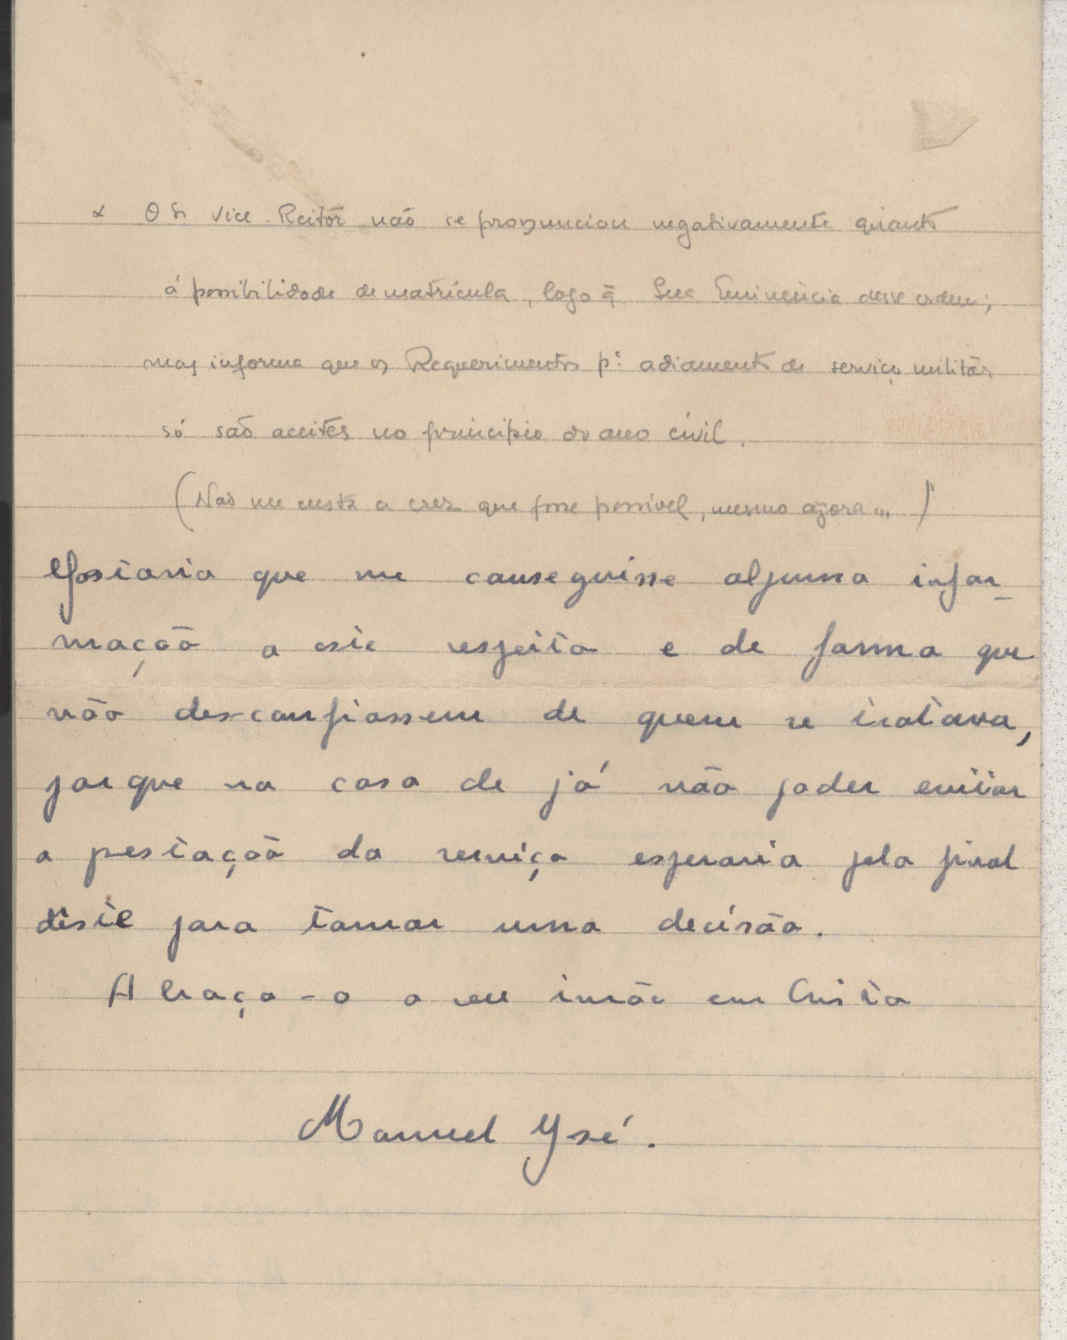 x O Sr Vice-Reitor não se pronunciou negativamente quanto
á possibilidade de matrícula, logo q̃ Sua Eminência desse ordem;
mas informa que os Requerimentos pª adiamento de serviço militar
só são aceites no princípio do ano civil.
(Não me custa a crer que fosse possível, mesmo agora...)
Gostaria que me conseguisse alguma infor-
mação a este respeito e de forma que
não desconfiassem de quem se tratava,
porque no caso de já não poder evitar
a pestação do serviço esperaria pelo final
dêste para tomar uma decisão.
Abraça-o o seu irmão em Cristo
Manuel José.